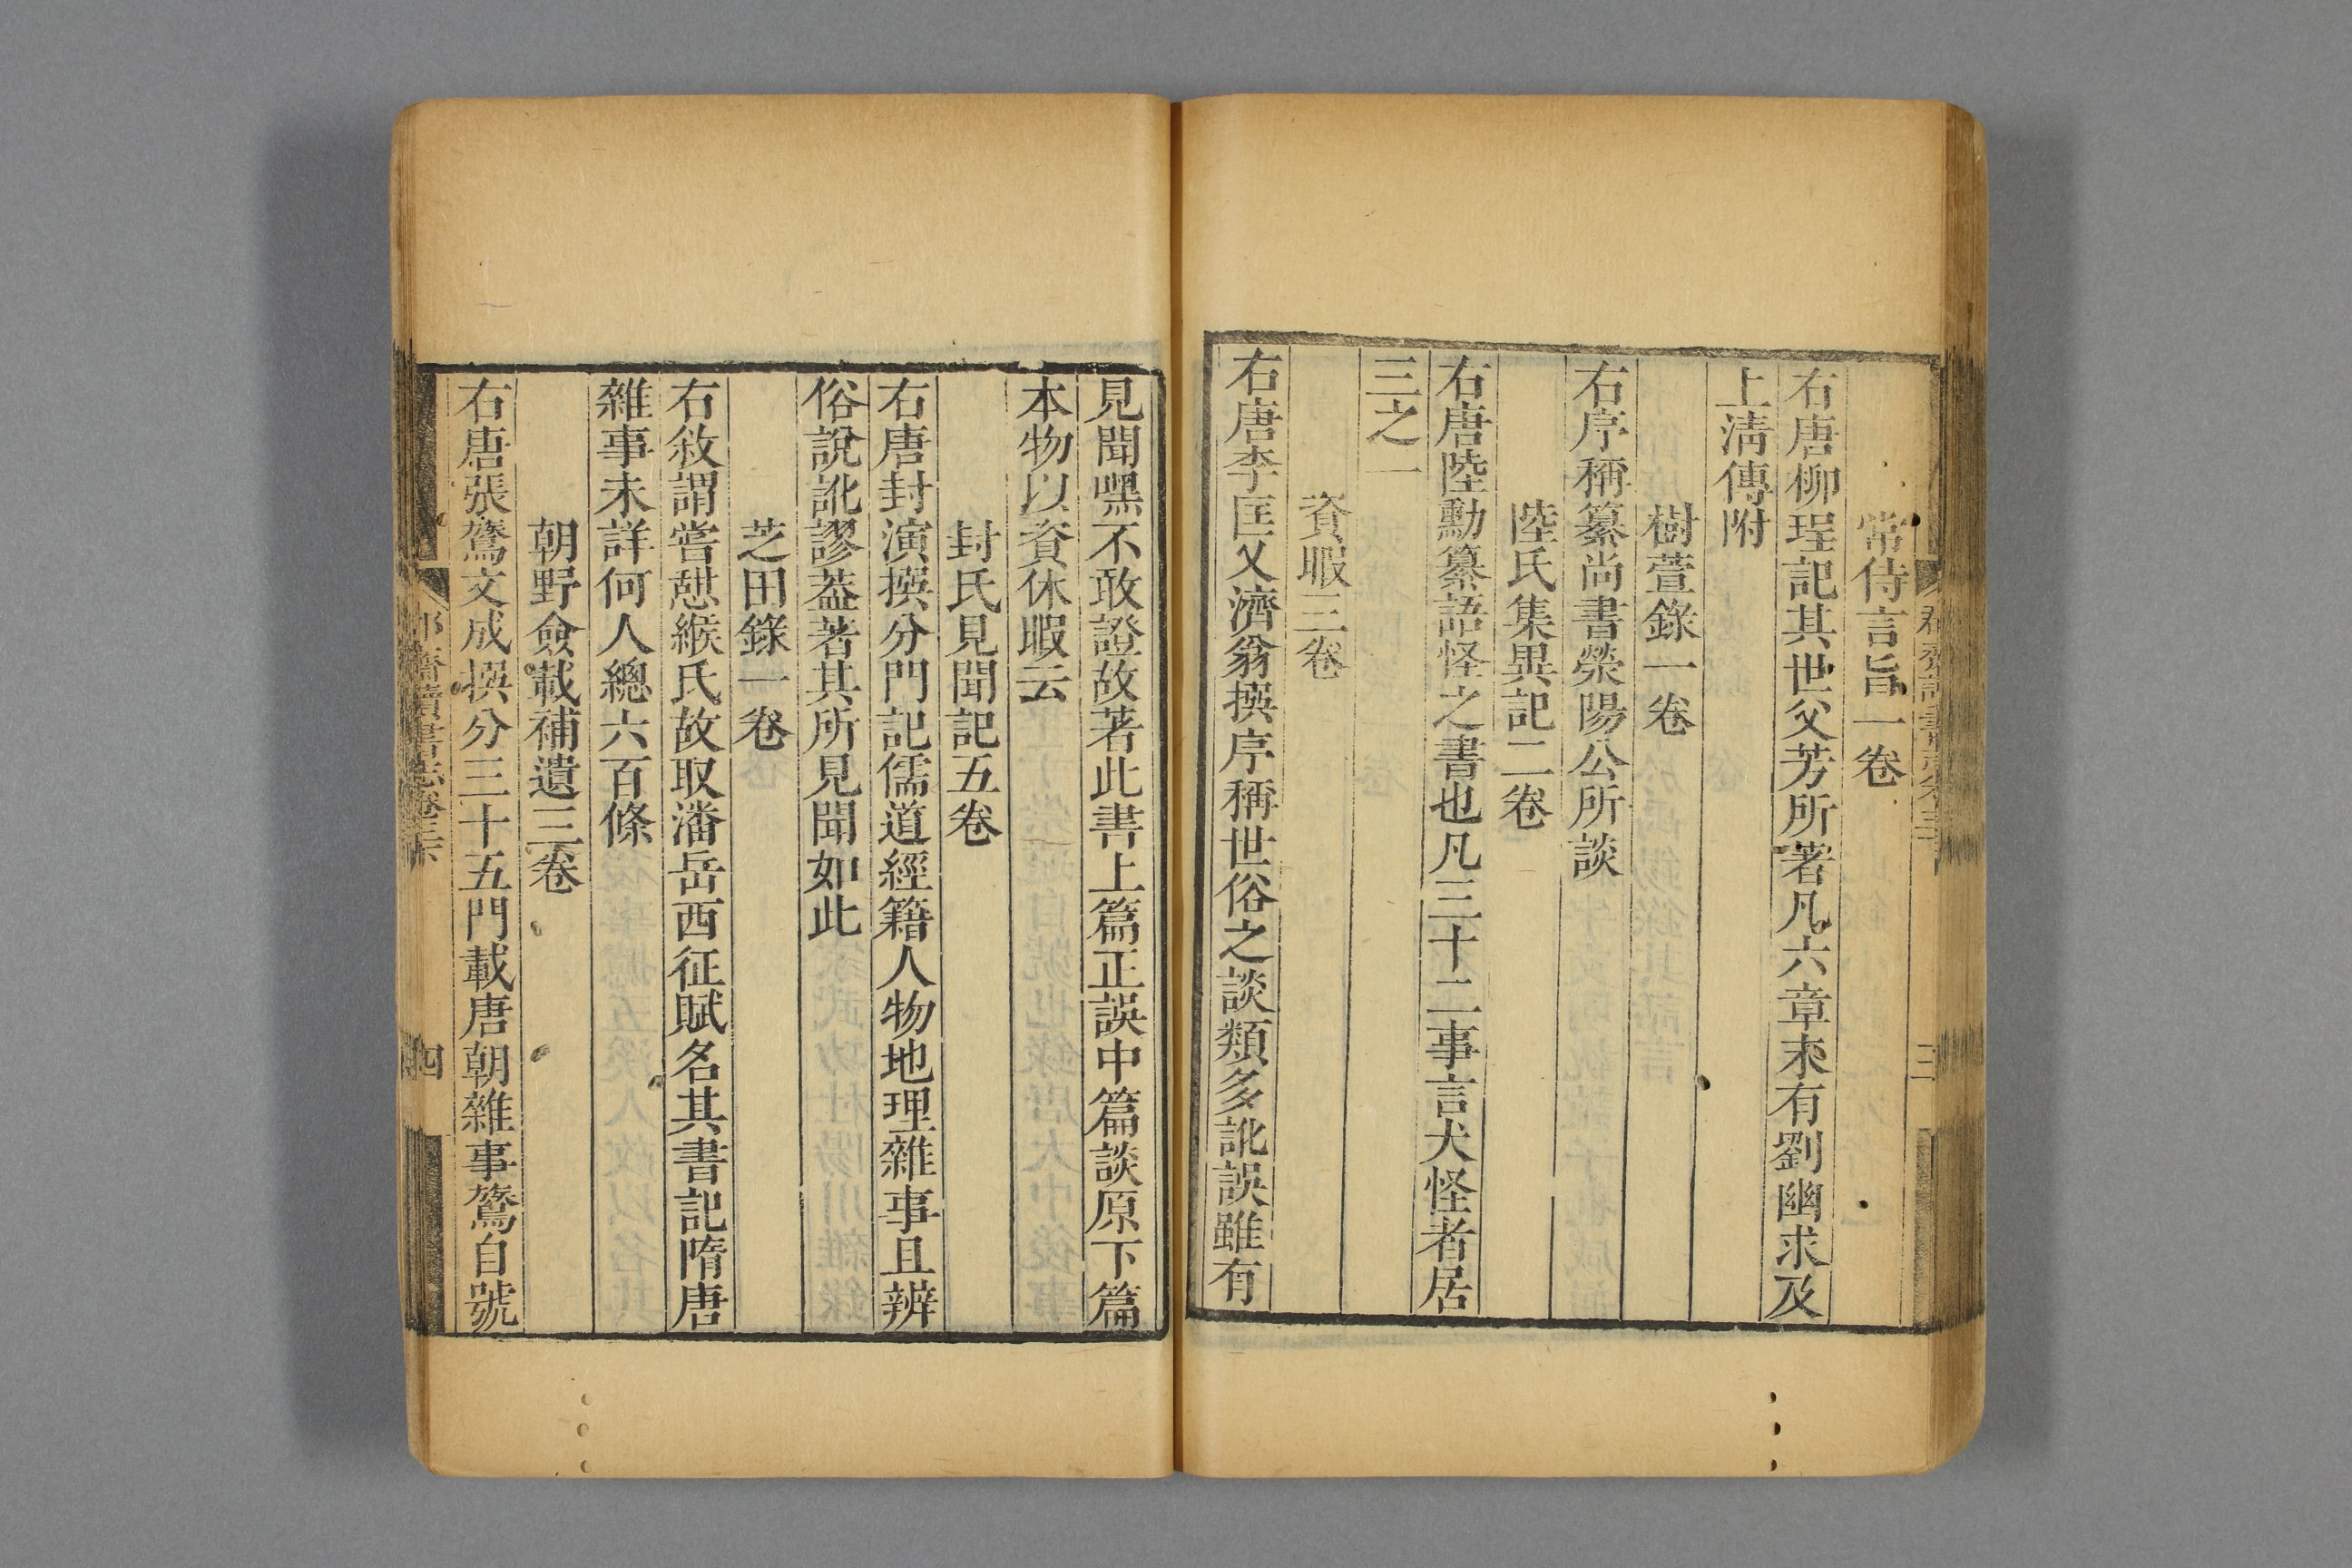 常侍言旨一卷
右唐柳珵記其世父芳所著凡六章末有劉幽求及
上淸傳附
樹萱錄一卷
右序稱纂尚書滎陽公所談
陸氏集異記二卷
右唐陸勳纂語怪之書也凡三十二事言犬怪者居
三之一
資暇三卷
右唐李匡乂濟翁撰序稱世俗之談類多訛誤雖有
見聞嘿不敢證故著此書上篇正誤中篇談原下篇
本物以資休暇云
封氏見聞記五卷
右唐封演撰分門記儒道經籍人物地理雜事且辨
俗說訛謬葢著其所見聞如此
芝田錄一卷
右敘謂嘗憇緱氏故取潘岳西征賦名其書記隋唐
雜事未詳何人總六百條
朝野僉載補遺三卷
右唐張鷟文成撰分三十五門載唐朝雜事鷟自號
四